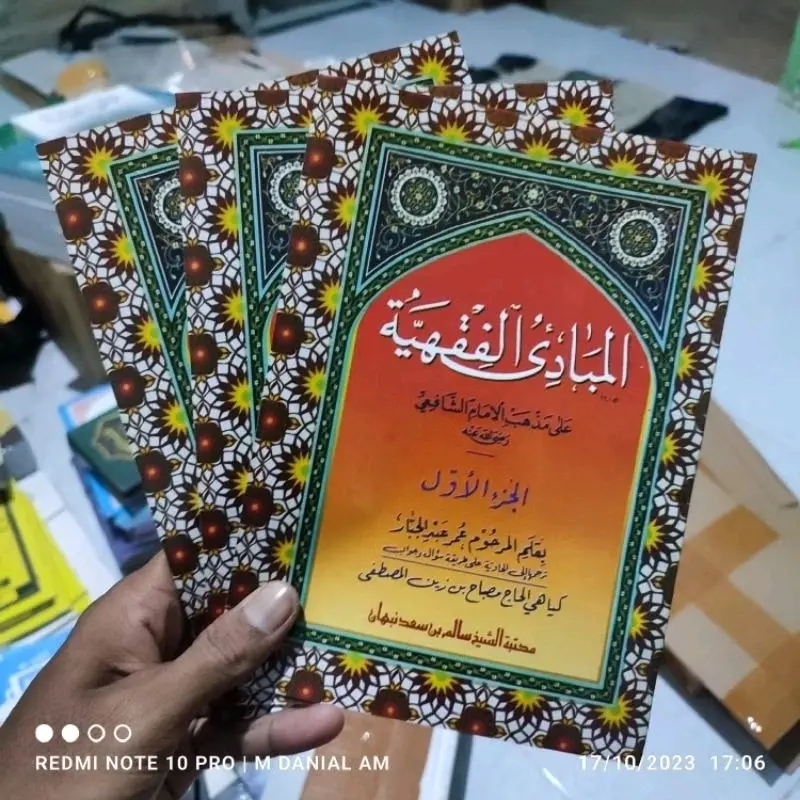 المبادئ الفقهية
على مذهب الامام الشافعي
رضي الله عنه
الجزء الأول
بقلم المرحوم عمر عبد الجبار
ترجمها إلى الجاوية على طريقة سؤال وجواب
كياهي الحاج مصباح بن زين المصطفى
مكتبة الشيخ سالم بن سعد نبهان
REDMI NOTE 10 PRO | M DANIAL AM
17/10/2023 17:06